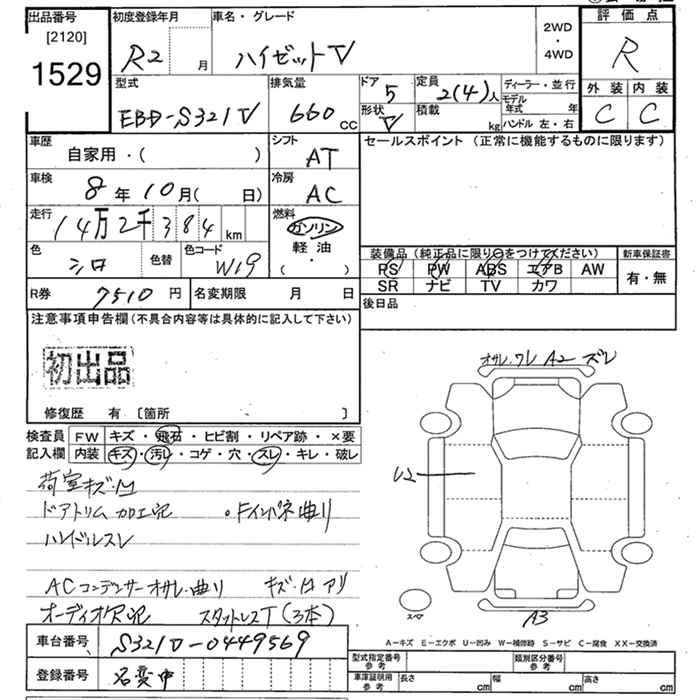 出品番号 初度登録年月 車名・グレード 評価点
[2120]
1529 R2 月 ハイゼットV 2WD・4WD R
型式 排気量 ドア 5 定員 2(4)人 ディーラー・並行 外装 内装
EBD-S321V 660 CC 形状 V 積載 kg モデル年式 年 ハンドル 左・右 C C
車歴 シフト セールスポイント (正常に機能するものに限ります)
自家用・( ) AT
車検 8年10月( 日) 冷房 AC
走行 14万2千384 km 燃料 ガソリン
軽油
( )
色 シロ 色替 色コード W19 装備品 (純正品に限り○をつけてください) 新車保証書
PS PW ABS エアB AW 有・無
SR ナビ TV カワ
R券 7510円 名変期限 月 日 後日品
注意事項申告欄 (不具合内容等は具体的に記入して下さい)
初出品
オサレ.ワレ A2 ズレ
修復歴 有 [箇所 ]
検査員 FW キズ・飛石・ヒビ割・リペア跡・×要
記入欄 内装 キズ・汚レ・コゲ・穴・スレ・キレ・破レ
U2
荷室キズ・凹
ドアトリム加工記 ・Fインパネ曲リ
ハンドルスレ
ACコンデンサーオサレ・曲リ キズ・凹アリ
オーディオ欠記 スタットレスT(3本)
スペア A3
車台番号 S321V-0449569
A-キズ E-エクボ U-凹み W-補修跡 S-サビ C-腐食 XX-交換済
登録番号 名変中
型式指定番号 参考 類別区分番号 参考
車庫証明用 参考 長さ cm 幅 cm 高さ cm